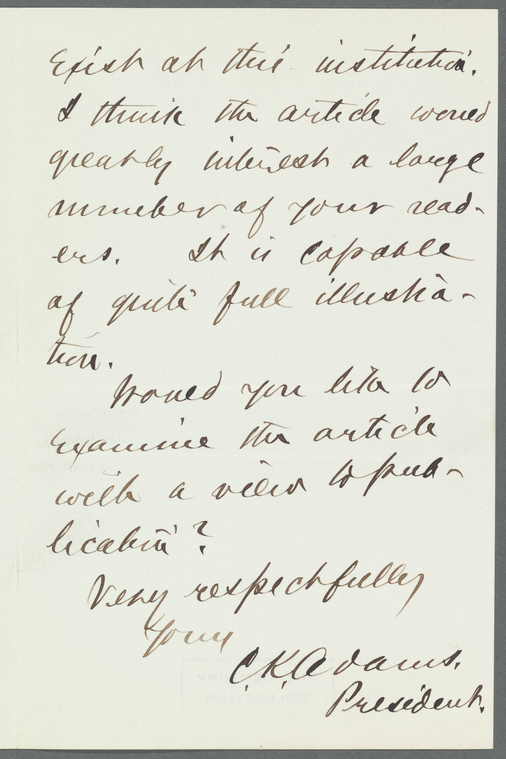 exist at this institution.
I think the article would
greatly interest a large
number of your read-
ers. It is capable
of quite full illustra-
tion.
Would you like to
examine the article
with a view to pub-
lication?
Very respectfully
Yours
C.K. Adams.
President.